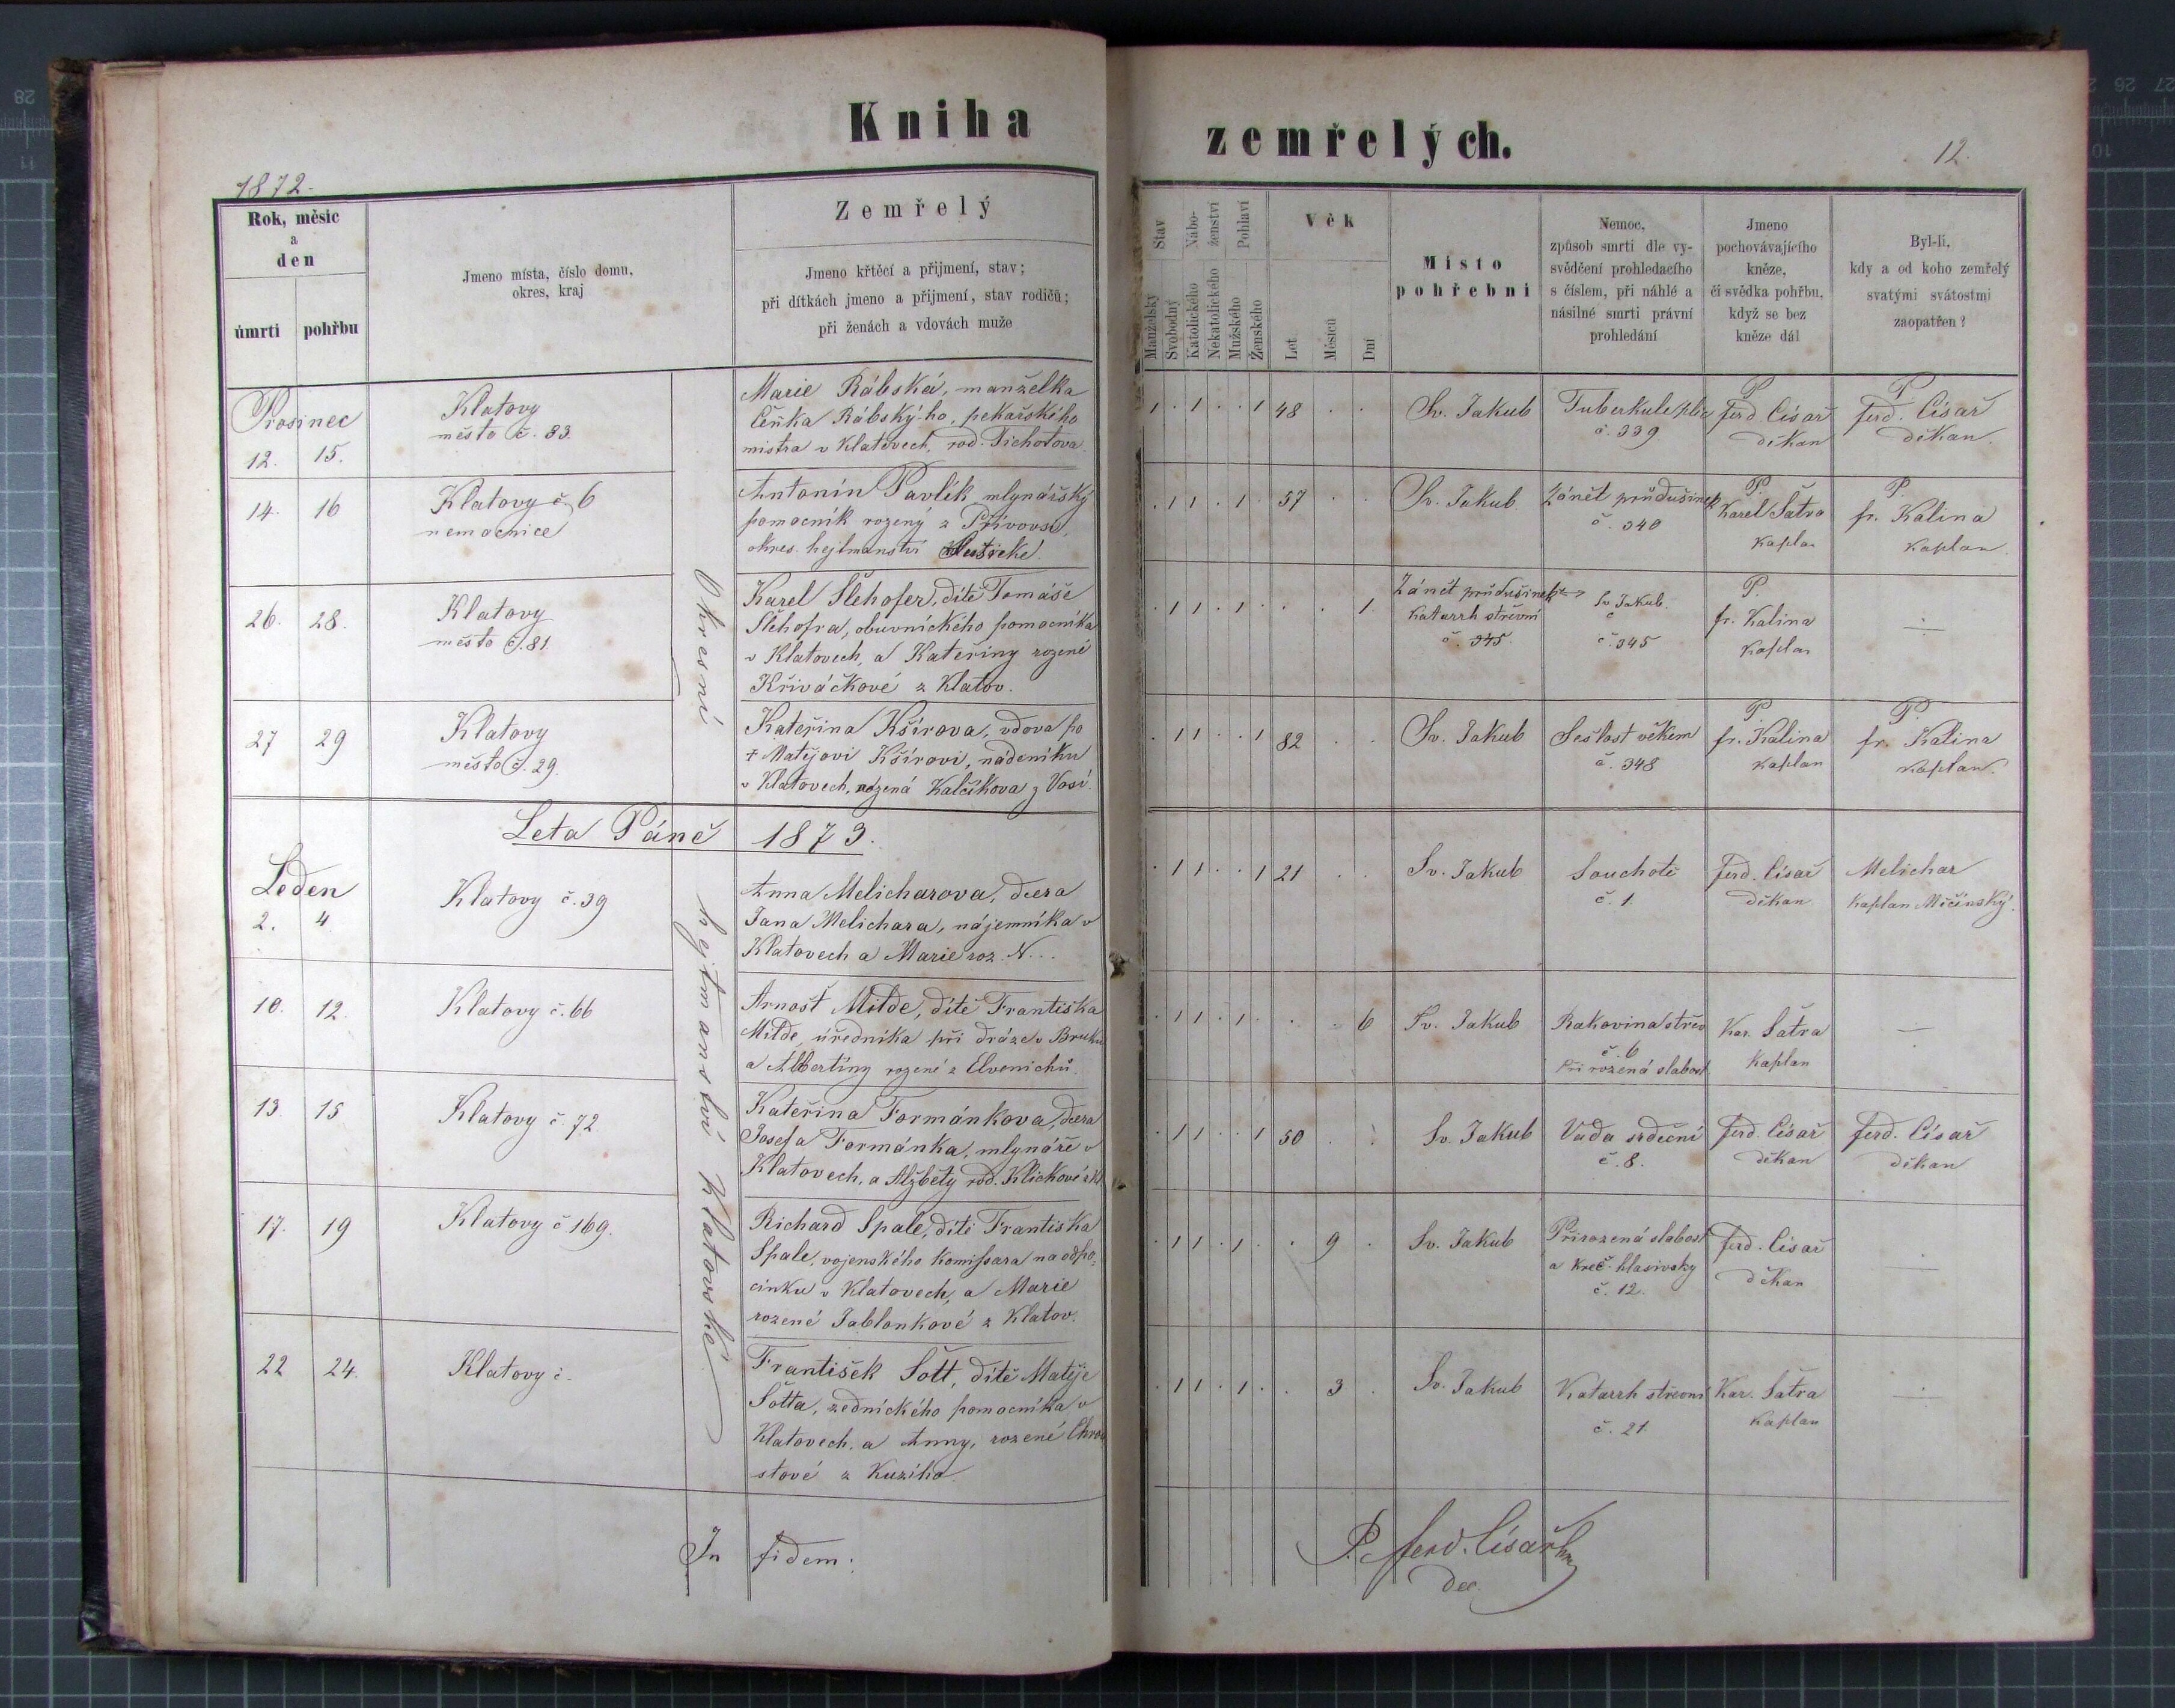 Kniha
zemřelých.
12.
1872.
Rok, měsíc
a
den
úmrtí
pohřbu
Jmeno místa, číslo domu,
okres, kraj
Zemřelý
Jmeno křtěcí a přijmení, stav;
při dítkách jmeno a přijmení, stav rodičů;
při ženách a vdovách muže
Stav
Manželský
Svobodný
Nábo-
ženství
Katolického
Nekatolického
Pohlaví
Mužského
Ženského
Věk
Let
Měsíců
Dní
Místo
pohřební
Nemoc,
způsob smrti dle vy-
svědčení prohledacího
s číslem, při náhlé a
násilné smrti právní
prohledání
Jmeno
pochovávajícího
kněze,
či svědka pohřbu,
když se bez
kněze dál
Byl-li,
kdy a od koho zemřelý
svatými svátostmi
zaopatřen?
Okresní hejtmanství Klatovské
Prosinec
12. 15.
Klatovy
město č. 83.
Marie Rábská, manželka
Čeňka Rábský-ho, pekařského
mistra v Klatovech, rod. Tichotova.
1 . 1 . . 1 48 . .
Sv. Jakub
Tuberkule plic
č. 339
P.
Ferd. Císař
děkan
P.
Ferd. Císař
děkan.
14. 16
Klatovy č. 6
nemocnice
Antonín Pavlík, mlynářský
pomocník rozený z Přívovsi,
okres. hejtmanství
. 1 1 . 1 . 57 . .
Sv. Jakub
Zánět průdušinek
č. 340
P.
Karel Šatra
kaplan
P.
fr. Kalina
kaplan.
26. 28.
Klatovy
město č. 81.
Karel Šlehofer, dítě Tomáše
Šlehofra, obuvnického pomocníka
v Klatovech, a Kateřiny rozené
Křiváčkové z Klatov.
. 1 1 . 1 . . . 1
Zánět průdušinek
Katarrh střevní
č. 345
Sv. Jakub.
č. 345
P.
fr. Kalina
kaplan
27 29
Klatovy
město č. 29.
Kateřina Kšírova, vdova po
+ Matějovi Kšírovi, nádeníku
v Klatovech, rozená Kalčíkova z Vosí.
. 1 1 . . 1 82 . .
Sv. Jakub
Sešlost věkem
č. 348
P.
fr. Kalina
kaplan
P.
fr. Kalina
kaplan.
Leta Páně 1873.
Leden
2. 4
Klatovy č. 39
Anna Melicharova, dcera
Jana Melichara, nájemníka v
Klatovech a Marie roz. N...
. 1 1 . . 1 21 . .
Sv. Jakub
Souchotě
č. 1.
Ferd. Císař
děkan
Melichar
kaplan Měčínský.
10. 12.
Klatovy č. 66
Arnošt Milde, dítě Františka
Milde, úředníka při dráze v Bruku
a Albertiny rozené z Elvenichů.
. 1 1 . 1 . . . 6
Sv. Jakub
Rakovina střev
č. 6
Přirozená slabost
Kar. Šatra
kaplan
13. 15
Klatovy č. 72
Kateřina Formánkova, dcera
Josefa Formánka, mlynáře v
Klatovech, a Alžběty rod. Klickové z Kl.
. 1 1 . . 1 50 . .
Sv. Jakub
Vada srdeční
č. 8.
Ferd. Císař
děkan
Ferd. Císař
děkan
17. 19
Klatovy č 169.
Richard Spale, dítě Františka
Spale, vojenského komissara na odpo-
činku v Klatovech, a Marie
rozené Jablonkové z Klatov.
. 1 1 . 1 . . 9 .
Sv. Jakub
Přirozená slabost
a kreč. hlasivsky
č. 12.
Ferd. Císař
děkan
22 24.
Klatovy č.
František Šott, dítě Matěje
Šotta, zednického pomocníka v
Klatovech, a Anny, rozené Chrou
stové z Kuzího.
. 1 1 . 1 . . 3 .
Sv. Jakub
Katarrh střevní
č. 21
Kar. Šatra
kaplan
In fidem:
P. Ferd. Císař